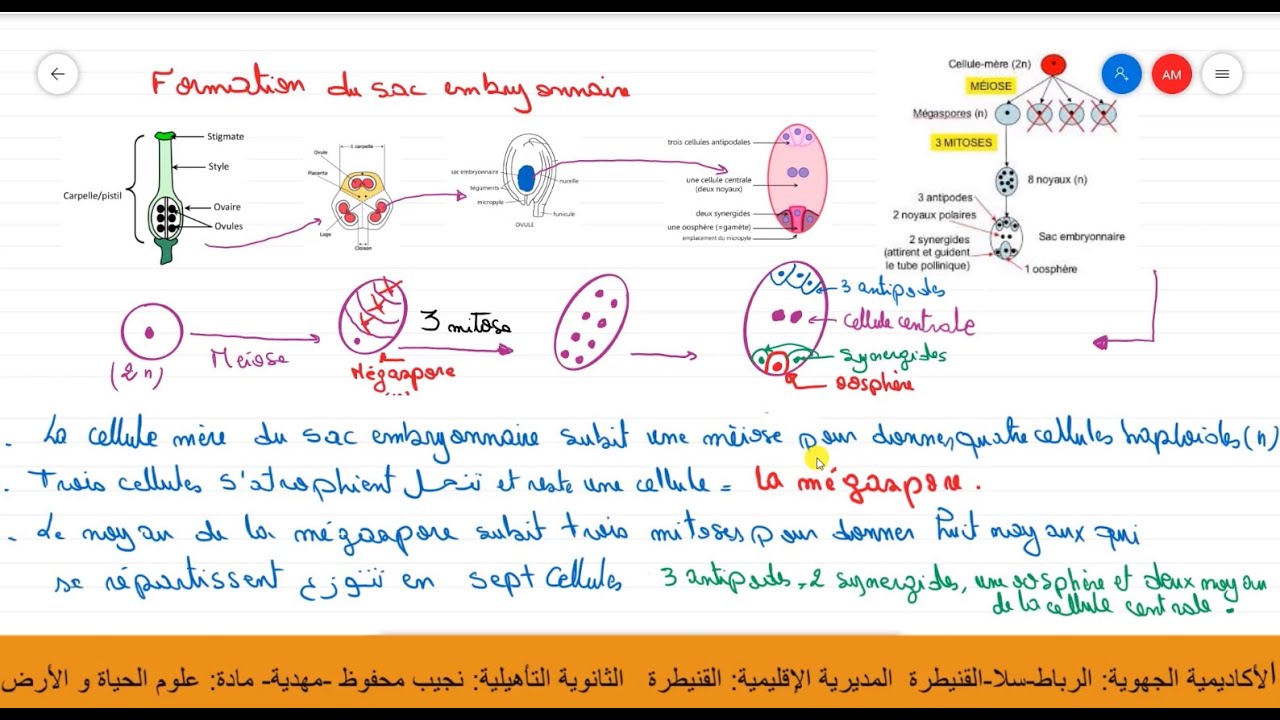 Formation du sac embryonnaire
AM
Stigmate
Style
Carpelle/pistil
Ovaire
Ovules
1 carpelle
Ovule
Placenta
Loge
Cloison
sac embryonnaire
téguments
micropyle
nucelle
funicule
OVULE
trois cellules antipodales
une cellule centrale
(deux noyaux)
deux synergides
une oosphère (=gamète)
emplacement du micropyle
Cellule-mère (2n)
MÉIOSE
Mégaspores (n)
3 MITOSES
8 noyaux (n)
3 antipodes
2 noyaux polaires
2 synergides
(attirent et guident
le tube pollinique)
Sac embryonnaire
1 oosphère
(2n)
Meiose
Mégaspore
3 mitose
3 antipodes
cellule centrale
synergides
oosphère
. La cellule mère du sac embryonnaire subit une méiose pour donner quatre cellules haploides (n)
. Trois cellules s'atrophient تنحل et reste une cellule = la mégaspore.
. Le noyau de la mégaspore subit trois mitoses pour donner huit noyaux qui
se répartissent تتوزع en sept cellules 3 antipods, 2 synergides, une oosphère et deux noyau
de la cellule centrale.
الأكاديمية الجهوية: الرباط-سلا-القنيطرة المديرية الإقليمية: القنيطرة الثانوية التأهيلية: نجيب محفوظ -مهدية- مادة: علوم الحياة و الأرض